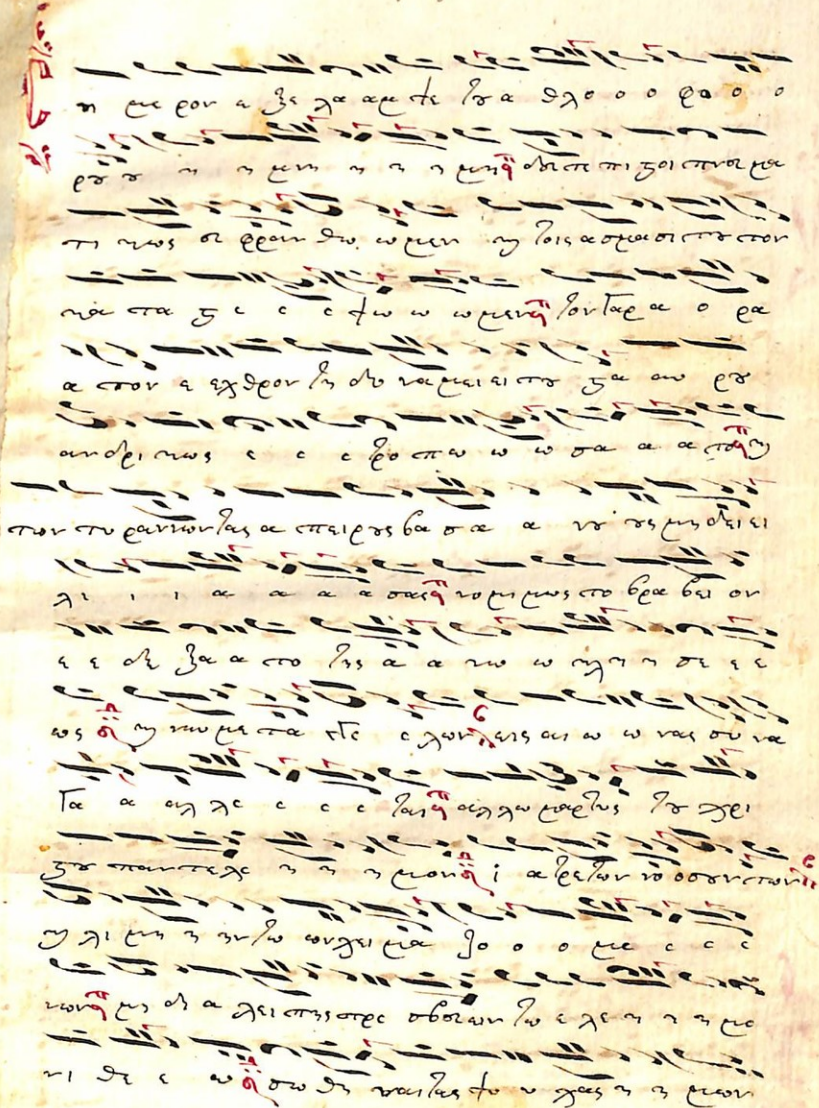 η με ρον ε ξε λα αμ ψε του α θλο ο ο φο ο ο
ρου ου η η μνη η η η μη δευ τε πι στοι πνευ μα
τι κως ευ φραν θω ω μεν και τοις α σμα σι του τον
κα τα στε ε ε ε ψω ω ω μεν τον γαρ α ο ρα
α τον ε εχ θρον τη δυ να μει ει του στα αυ ρου
αν δρι κως ε ε ε τρο πω ω ω σα α α το και
των τυ ραν νων τας α πει ρους βα σα α νου ους μη δει ει
λι ι ι α α α α σας νο μι μως το βρα βει ον
ε ε δε ξα α το της α α νω ω κλη η σε ε ε
ως και νυν με τα ε λων εις αι ω ω νας συ να
γα α αλ λε ε ε ε ται αλλ ω μαρτυς του χρι
στου παν τε λε η η η μον ι α τρε των νο σουν των
και λι μη η ην τω ων χει μα ζο ο ο με ε ε ε
νων μη δι α λει πης πρε σβευ ων τω ε λε η η η μο
νι θε ε ω σω θη ναι τας ψυ υ χας η η μων